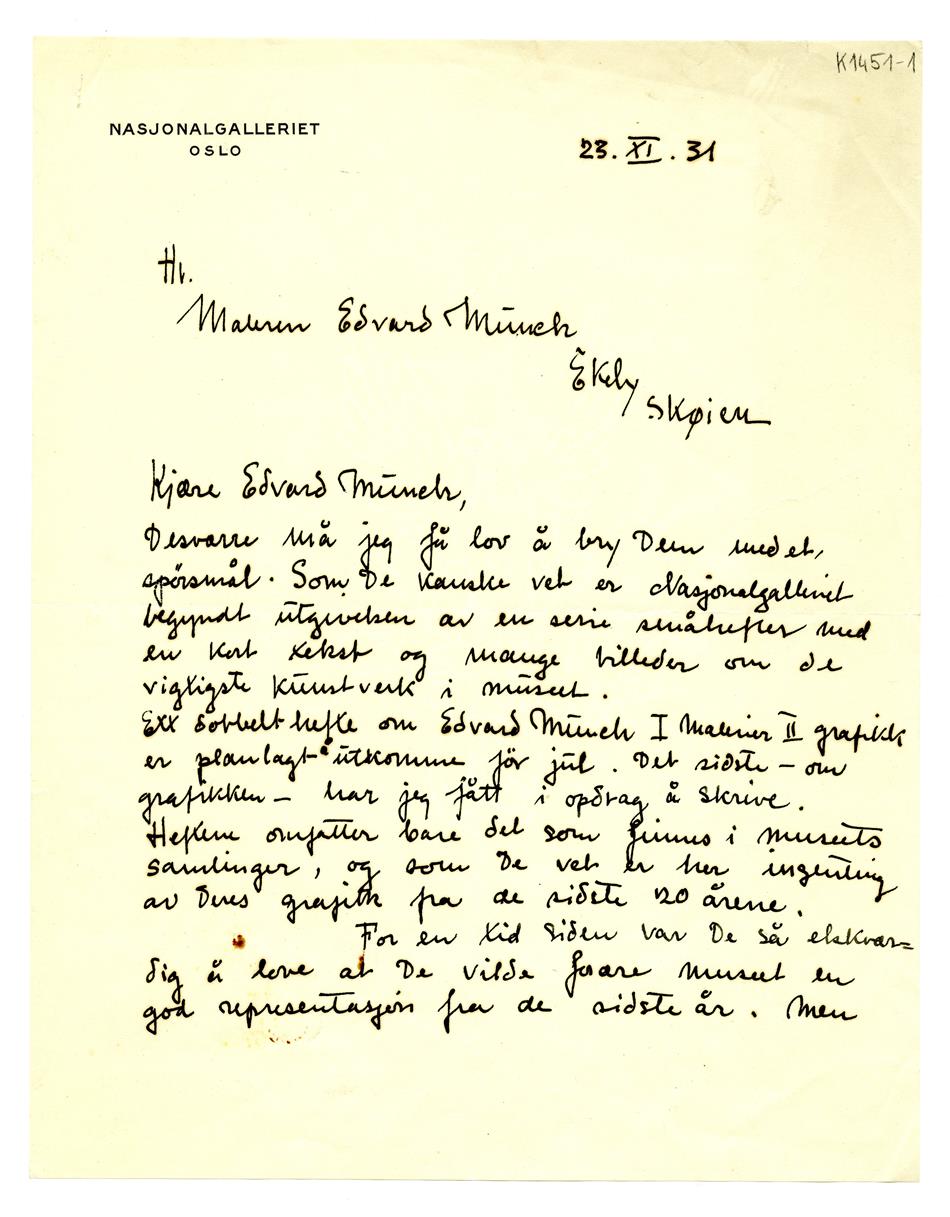 K1451-1
NASJONALGALLERIET
OSLO
23. XI. 31
Hr.
Maleren Edvard Munch
Ekely
Skøien
Kjære Edvard Munch,
Desværre må jeg få lov å bry Dem med et,
spörsmål. Som De kanske vet er Nasjonalgalleriet
begyndt utgivelsen av en serie småhefter med
en kort tekst og mange billeder om de
vigtigste kunstverk i museet.
Ett dobbelt hefte om Edvard Munch I Malerier II grafikk
er planlagt å utkomme för jul. Det sidste – om
grafikken – har jeg fått i opdrag å skrive.
Heftene omfatter bare det som finnes i museets
samlinger, og som De vet er her ingenting
av Deres grafikk fra de sidste 20 årene.
For en tid siden var De så elskvær=
dig å love at De vilde forære museet en
god representasjon fra de sidste år. Men